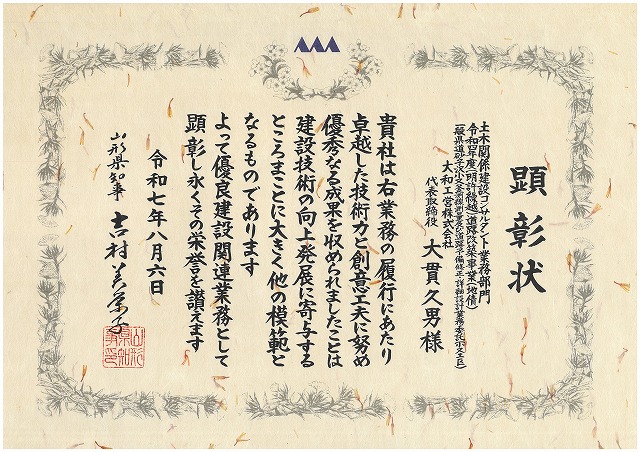 顕彰状
土木関係建設コンサルタント業務部門
令和五年度(明許繰越)道路改築事業(地債)
大和工営株式会社
代表取締役 大貫久男様
貴社は右業務の履行にあたり
卓越した技術力と創意工夫に努め
優秀なる成果を収められましたことは
建設技術の向上発展に寄与する
ところまことに大きく他の模範と
なるものであります
よって優良建設関連業務として
顕彰し永くその栄誉を讃えます
令和七年八月六日
山形県知事 吉村美栄子